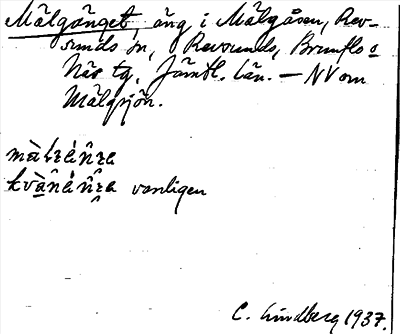 Mälgänget, äng i Mälgåsen, Rev-
sunds sn, Revsunds, Brunflo o
Näs tg, Jämtl. län. – NV om
Mälgsjön.
vanligen
C. Lindberg 1937.